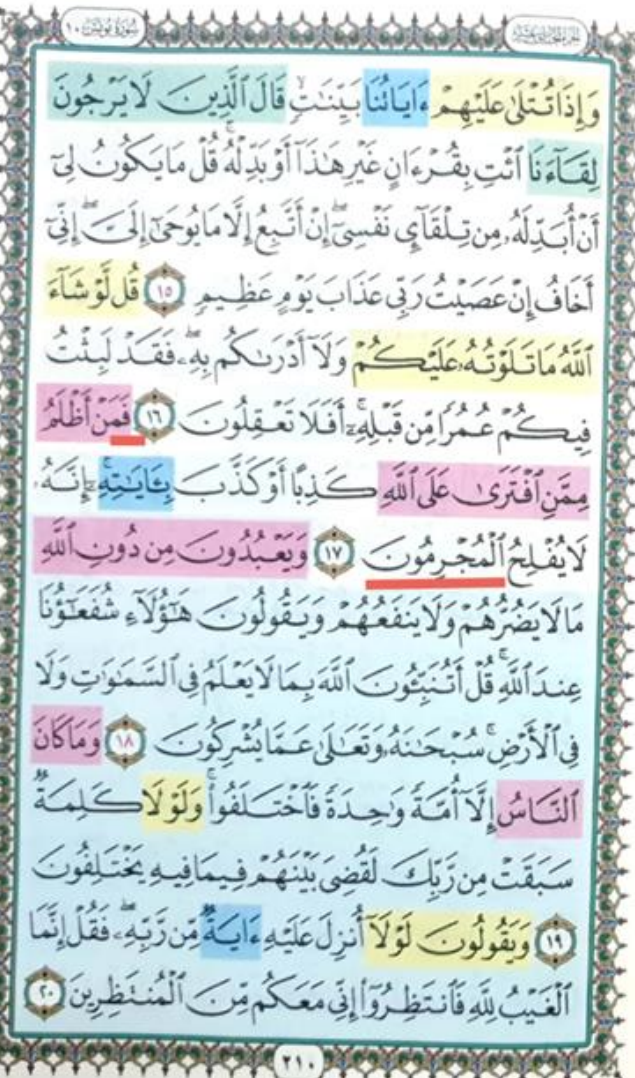 سُورَةُ يُونُسَ ١٠
الجزء الحادي عشر
وَإِذَا تُتْلَىٰ عَلَيْهِمْ ءَايَاتُنَا بَيِّنَٰتٍ قَالَ ٱلَّذِينَ لَا يَرْجُونَ
لِقَآءَنَا ٱئْتِ بِقُرْءَانٍ غَيْرِ هَٰذَآ أَوْ بَدِّلْهُ ۚ قُلْ مَا يَكُونُ لِىٓ
أَنْ أُبَدِّلَهُۥ مِن تِلْقَآئِ نَفْسِىٓ ۖ إِنْ أَتَّبِعُ إِلَّا مَا يُوحَىٰٓ إِلَىَّ ۖ إِنِّىٓ
أَخَافُ إِنْ عَصَيْتُ رَبِّى عَذَابَ يَوْمٍ عَظِيمٍ ١٥ قُل لَّوْ شَآءَ
ٱللَّهُ مَا تَلَوْتُهُۥ عَلَيْكُمْ وَلَآ أَدْرَىٰكُم بِهِۦ ۖ فَقَدْ لَبِثْتُ
فِيكُمْ عُمُرًا مِّن قَبْلِهِۦٓ ۚ أَفَلَا تَعْقِلُونَ ١٦ فَمَنْ أَظْلَمُ
مِمَّنِ ٱفْتَرَىٰ عَلَى ٱللَّهِ كَذِبًا أَوْ كَذَّبَ بِـَٔايَٰتِهِۦٓ ۚ إِنَّهُۥ
لَا يُفْلِحُ ٱلْمُجْرِمُونَ ١٧ وَيَعْبُدُونَ مِن دُونِ ٱللَّهِ
مَا لَا يَضُرُّهُمْ وَلَا يَنفَعُهُمْ وَيَقُولُونَ هَٰٓؤُلَآءِ شُفَعَٰٓؤُنَا
عِندَ ٱللَّهِ ۚ قُلْ أَتُنَبِّـُٔونَ ٱللَّهَ بِمَا لَا يَعْلَمُ فِى ٱلسَّمَٰوَٰتِ وَلَا
فِى ٱلْأَرْضِ ۚ سُبْحَٰنَهُۥ وَتَعَٰلَىٰ عَمَّا يُشْرِكُونَ ١٨ وَمَا كَانَ
ٱلنَّاسُ إِلَّآ أُمَّةً وَٰحِدَةً فَٱخْتَلَفُوا۟ ۚ وَلَوْلَا كَلِمَةٌ
سَبَقَتْ مِن رَّبِّكَ لَقُضِىَ بَيْنَهُمْ فِيمَا فِيهِ يَخْتَلِفُونَ
١٩ وَيَقُولُونَ لَوْلَآ أُنزِلَ عَلَيْهِ ءَايَةٌ مِّن رَّبِّهِۦ ۖ فَقُلْ إِنَّمَا
ٱلْغَيْبُ لِلَّهِ فَٱنتَظِرُوٓا۟ إِنِّى مَعَكُم مِّنَ ٱلْمُنتَظِرِينَ ٢٠
٢١٠